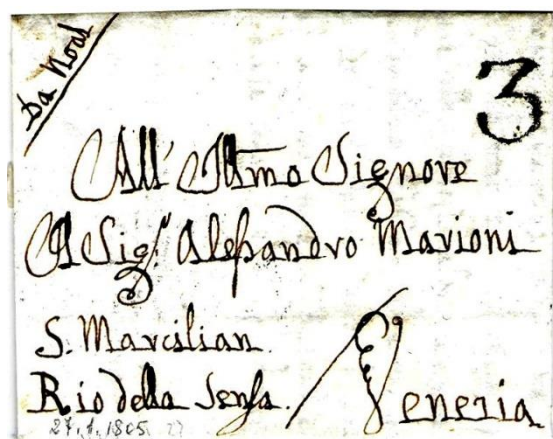 Da Noal
3
All' Illmo Signore
Il Sig.r Alessandro Marioni
S. Marcilian
Rio della Sensa.
Venezia
27.1.1805